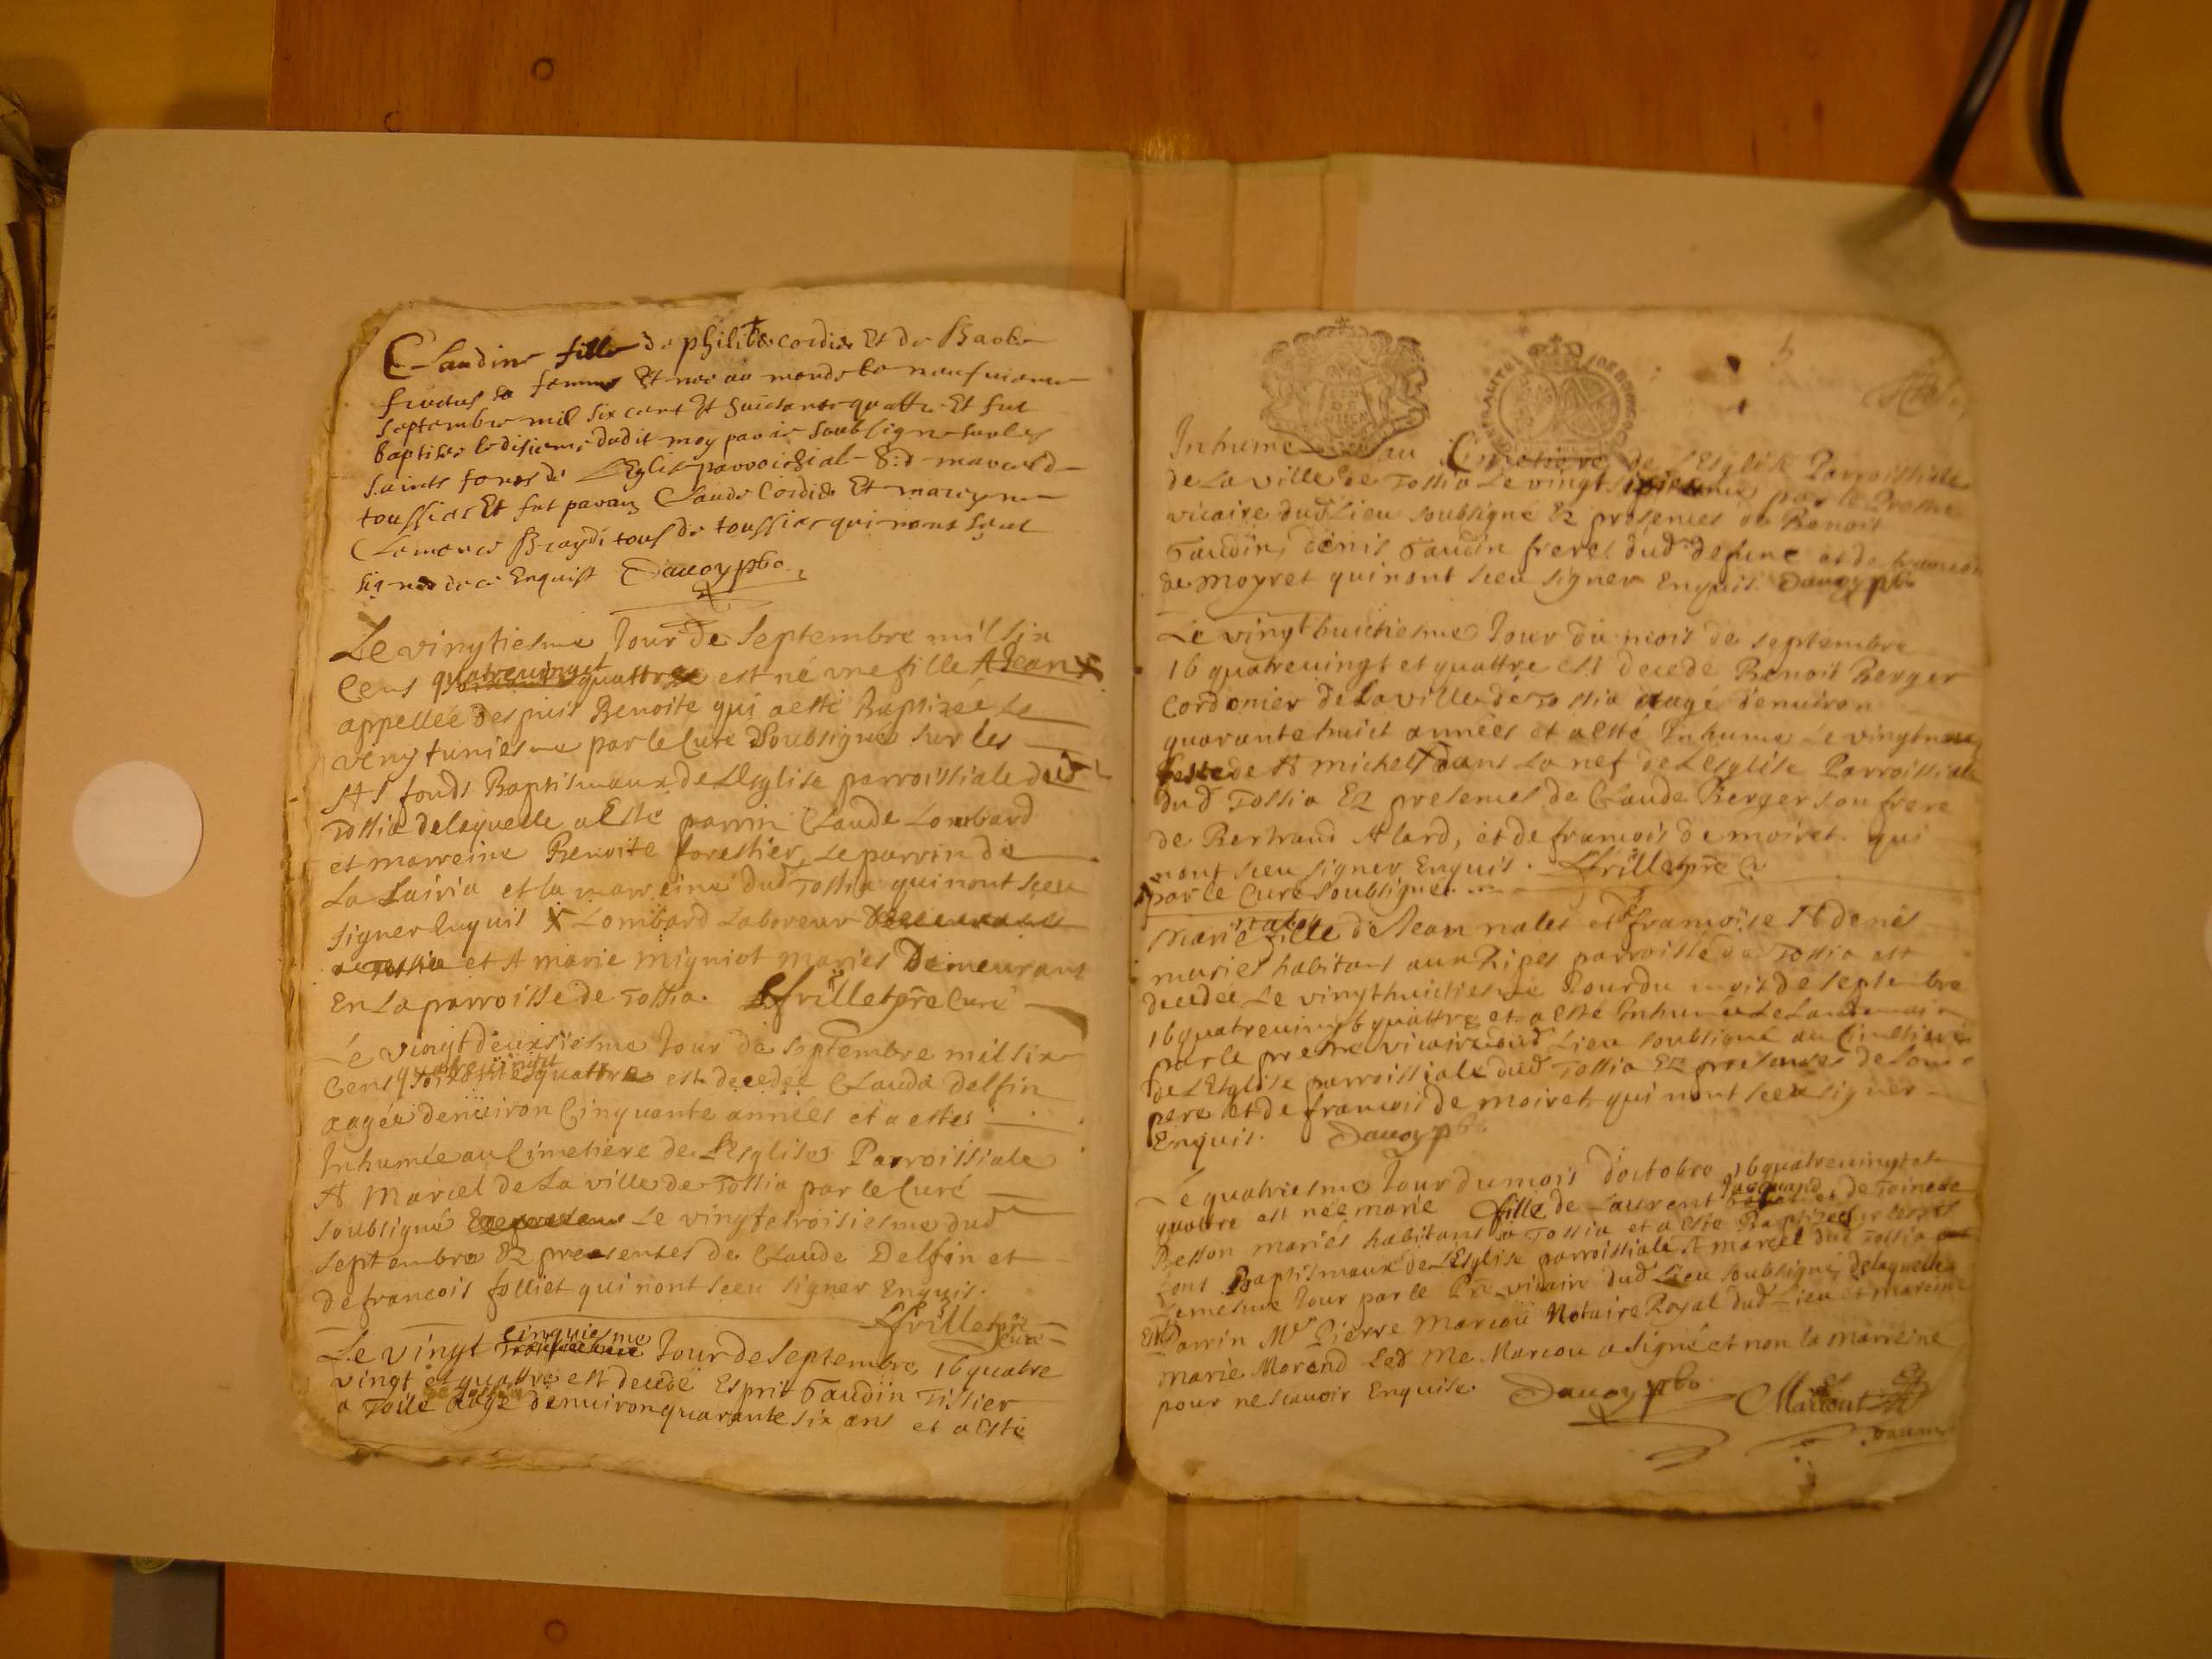 Claudine fille de philibe cordié Et de
sa femme Et nee au monde le neufvieme
septembre mil six cent Et quattre Et fut
baptisée le disieme dudit moy par soubsigne sur les
saints fons de LEglise parroichial
toussias Et fut parain Claude Cordié Et
Clemance tous de toussias qui nont sceut
signer de ce Enquist Dauoy pbo
Le vingtiesme Jour de Septembre mil six
Cens quatreuingt quattre est né vne fille A Jean
appellée despuis Benoite qui aesté Baptizée le
vingtuniesme par le Curé Soubsigné sur les
Sts fonds Baptismaux de LEsglise parroissiale dud
Tossia delaquelle aEsté parrin Claude Lombard
et marreine Benoite forestier, Le parrin de
La Lairia et la marreine dud Tossia qui nont sceu
signer Enquis X Lombard Laboreur
et A marie migniot mariés Demeurant
En La parroisse de Tossia. pre Curé
Le vingtdeuxsiesme Jour de Septembre mil six
Cens quatreuingt quattre est decedée Clauda Delfin
aagée denuiron Cinquante années et a estés
Inhumée au Cimetiere de LEsglise Parroissiale
St Marcel de La ville de Tossia par le Curé
soubsigné Le vingtetroisiesme dud
Septembre Ez presentes de Claude Delfin et
de francois folliet qui nont sceu signer Enquis.
Curé
Le vingt cinquiesme Jour de Septembre 16 quatre
vingt et quattre est decedé Esprit Gaudin Tissier
a Toile de Tossia aagé denuiron quarante six ans et a esté
Inhumé au Cimetiere de LEsglise Parroissiale
de La ville de Tossia Le vingt sixiesme par le Prestre
vicaire dud Lieu soubsigné Ez presences de Benoit
Gaudin, denis Gaudin freres dud defunc et de francois
de Moyret qui nont sceu signer Enquis. Dauoy pbo
Le vingthuictiesme Jour du mois de septembre
16 quatreuingt et quattre est decedé Benoit Berger
Cordonier de La ville de Tossia aagé denuiron
quarantehuict années et aesté Inhumé Le vingtneuf
feste de St michel dans La nef de LEsglise Parroissiale
dud Tossia Ez presences de Claude Berger son frere
de Bertrand Alard, et de francois de moiret qui
nont sceu signer Enquis. pre C
par le Curé soubsigné
Marie fille de Jean nales et de francoise St denis
mariés habitans aux Ripes parroisse de Tossia est
decedée Le vingthuictiesme Jour du mois de septembre
16 quatreuingt quattre et aesté Inhumée Le Landemain
par le prestre vicaire dud Lieu soubsigné au Cimetiere
de LEsglise parroissiale dud Tossia Ez presences de son
pere et de francois de moiret qui nont sceu signer
Enquis. Dauoy pbo
Le quatriesme Jour du mois doctobre 16 quatreuingt et
quattre est née marie fille de Laurent Jacquand et de Toinete
Besson mariés habitans a Tossia et a esté Baptizée sur les sts
fons Baptismaux de LEsglise parroissiale St marcel dud Tossia
Le mesme Jour par le Pre vicaire dud Lieu soubsigné, delaquelle a
Esté Parrin Mer Pierre Marcou Notaire Royal dud Lieu et mareine
marie Morand Led Me Marcou a signé et non la marreine
pour ne scauoir Enquise. Dauoy pbo Marcout